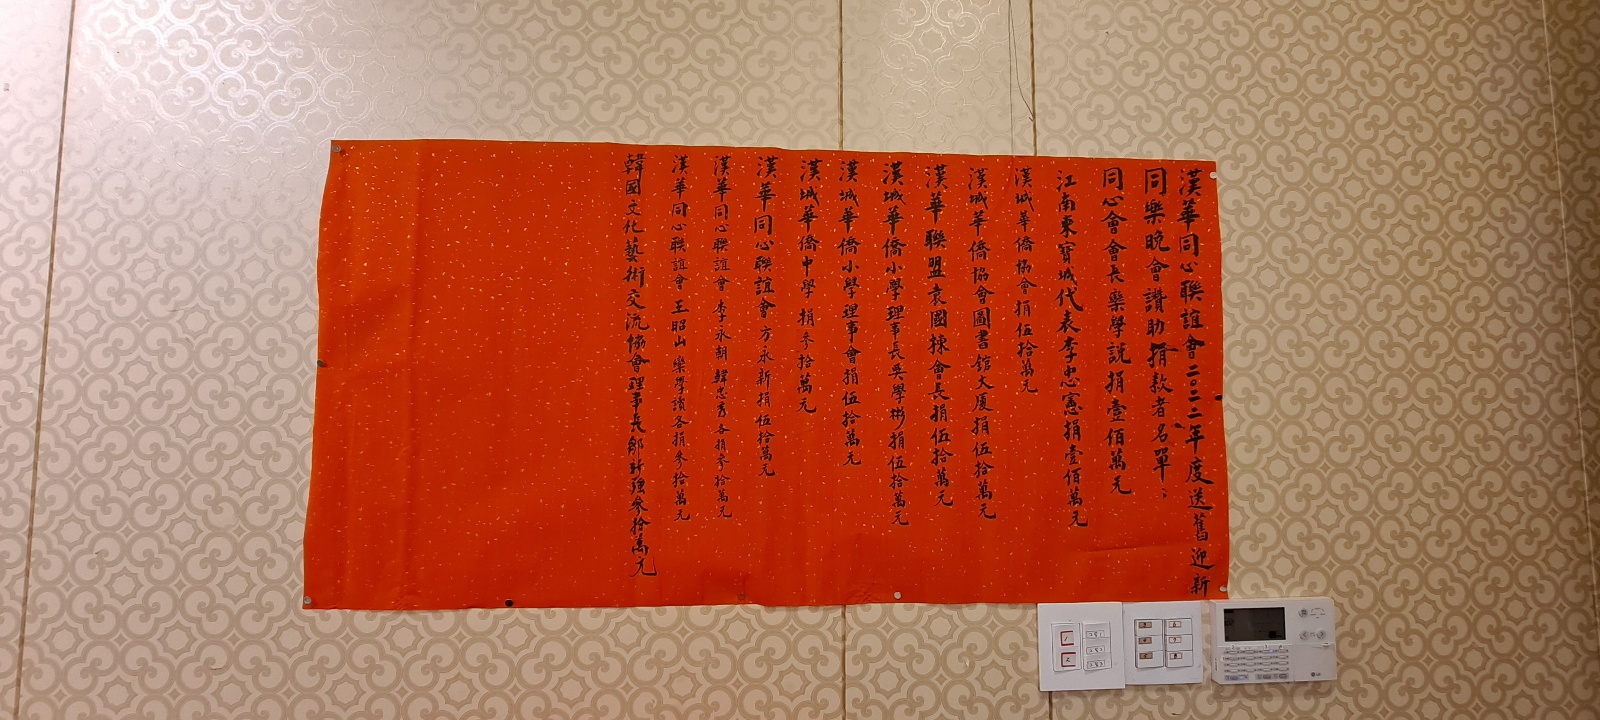 漢華同心聯誼會二〇二二年度送舊迎新
同樂晚會讚助捐款者名單:
同心會會長欒學説捐壹佰萬元
江南東寶城代表李忠憲捐壹佰萬元
漢城華僑協會捐伍拾萬元
漢城華僑協會圖書館大厦捐伍拾萬元
漢華聯盟袁國棟會長捐伍拾萬元
漢城華僑小學理事長吳學彬捐伍拾萬元
漢城華僑小學理事會捐伍拾萬元
漢城華僑中學捐參拾萬元
漢華同心聯誼會方永新捐伍拾萬元
漢華同心聯誼會李永朝韓忠秀各捐參拾萬元
漢華同心聯誼會王昭山欒學讀各捐參拾萬元
韓國文化藝術交流協會理事長鄒新強參拾萬元
LG